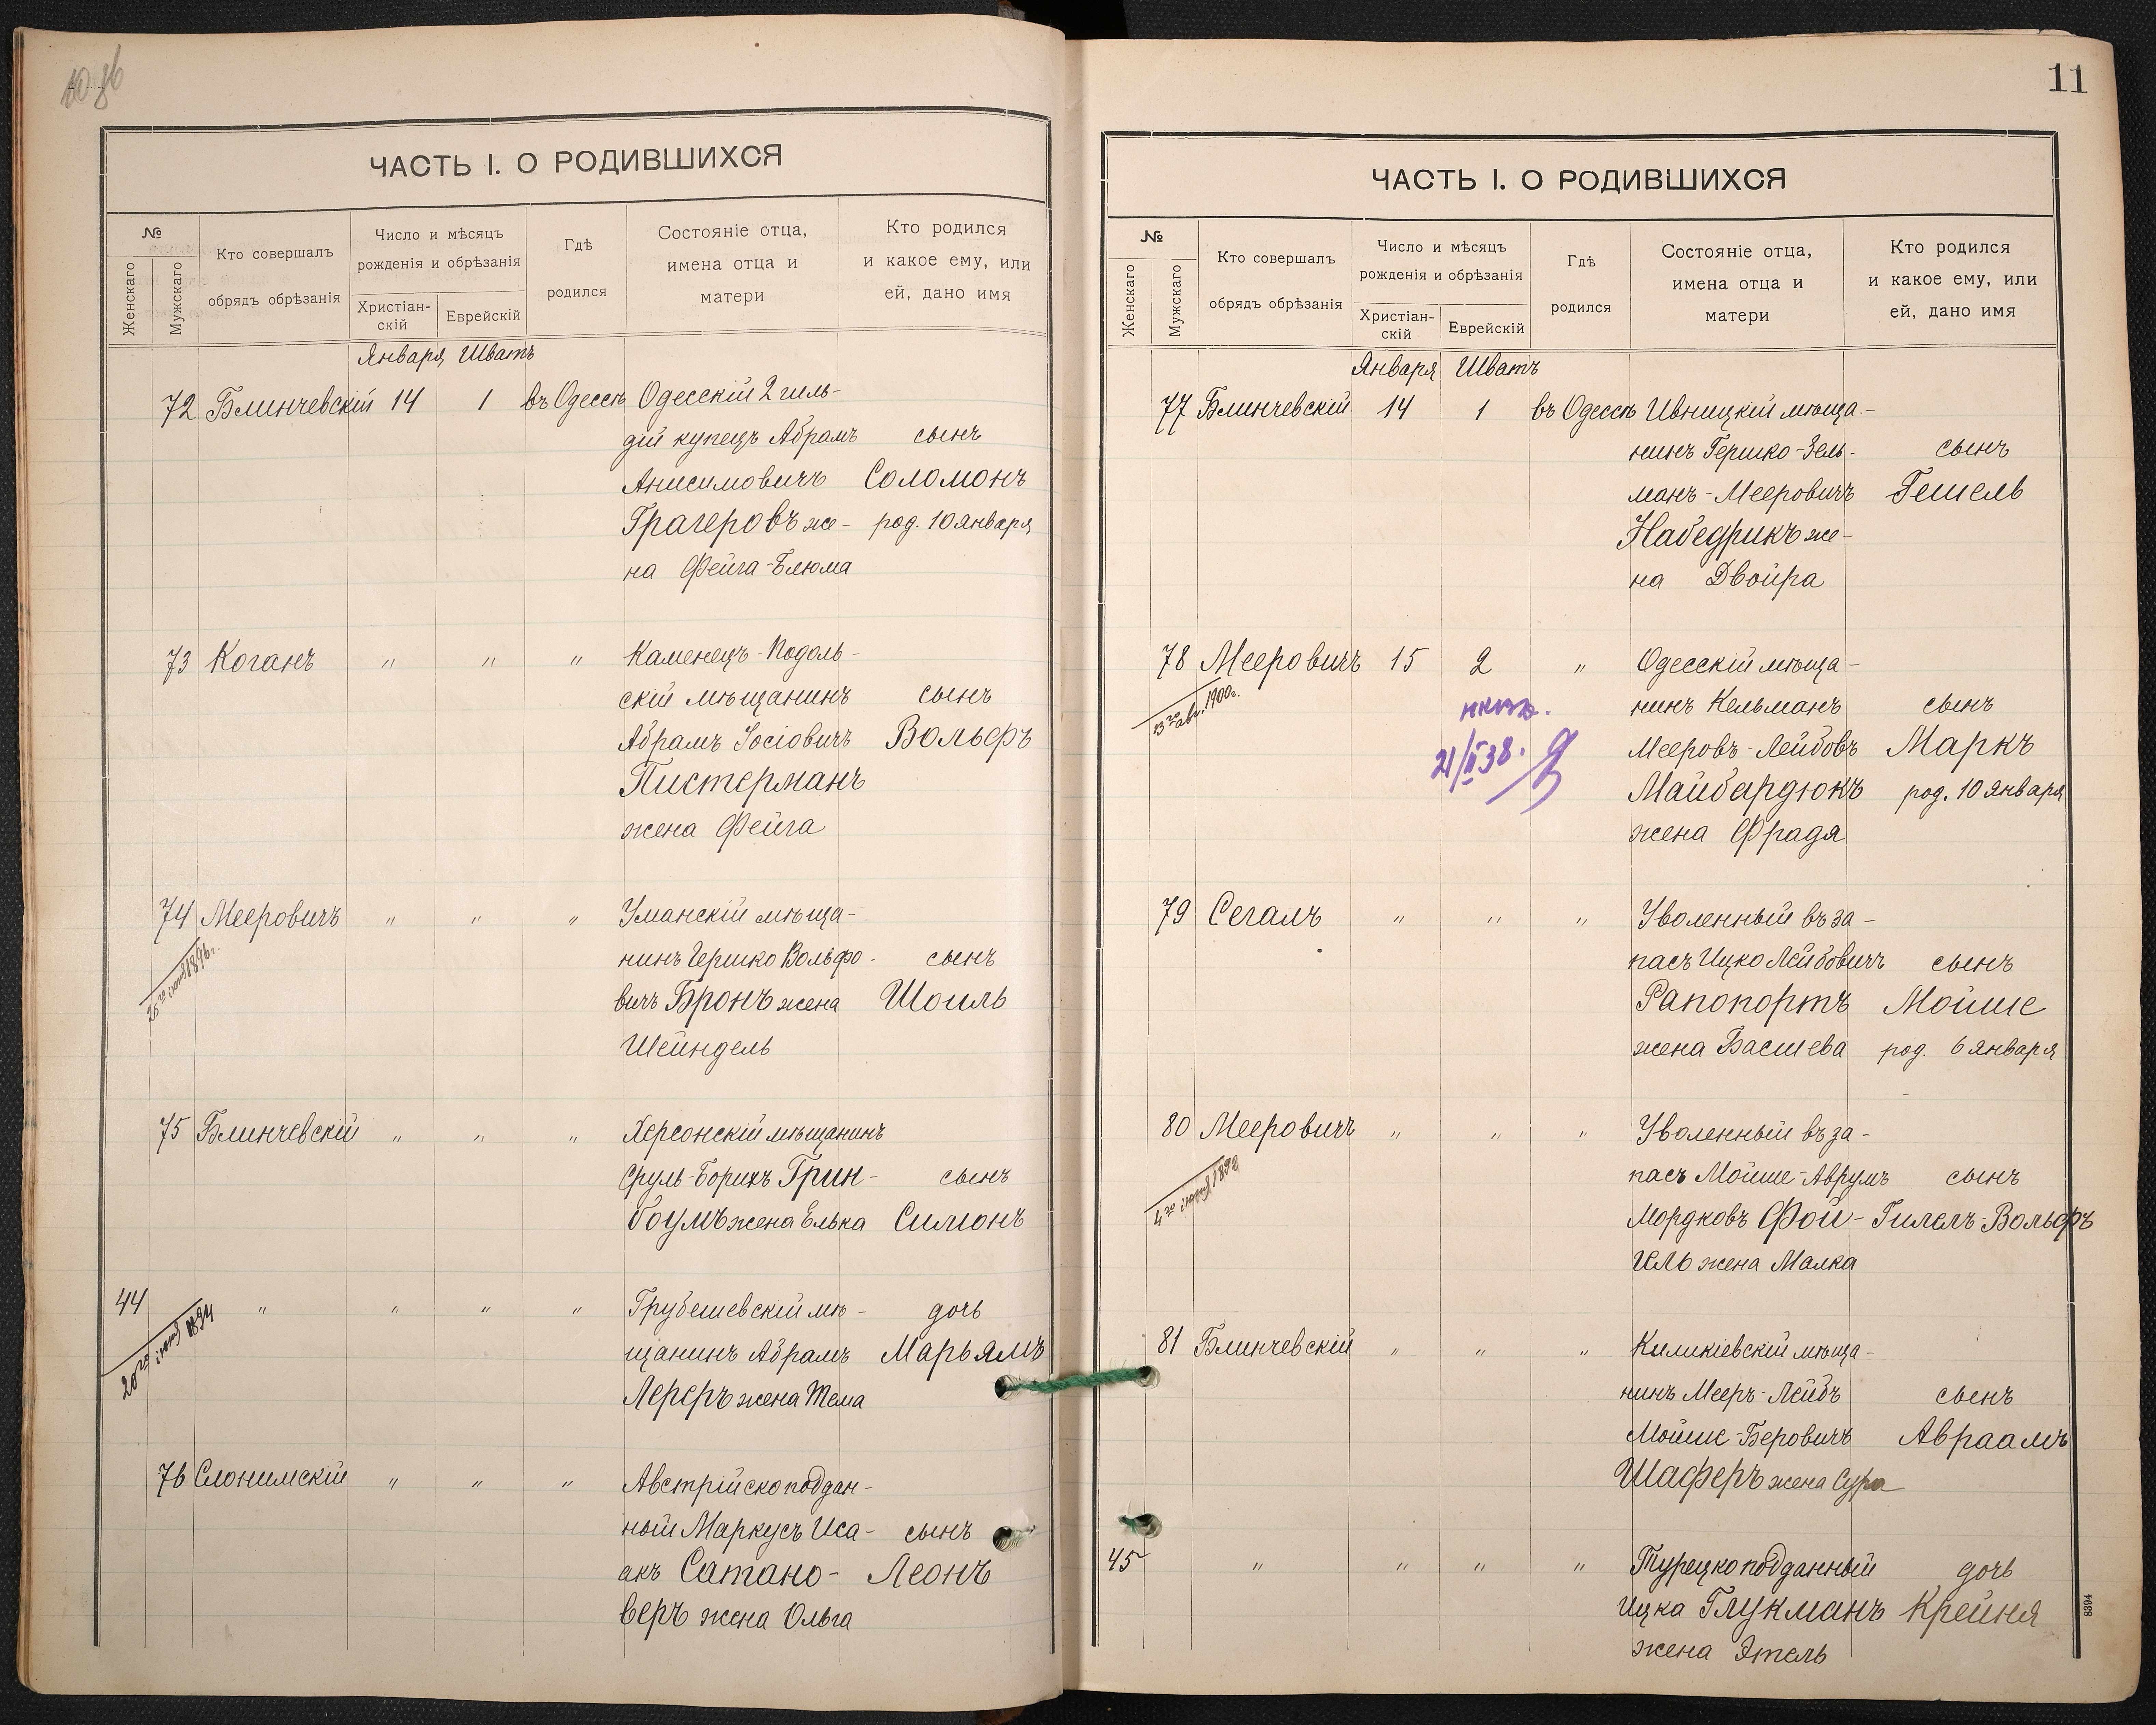 ЧАСТЬ I. О РОДИВШИХСЯ
№
Женскаго
Мужскаго
Кто совершалъ
обрядъ обрѣзанія
Число и мѣсяцъ
рожденія и обрѣзанія
Христіан-
скій
Еврейскій
Гдѣ
родился
Состояніе отца,
имена отца и
матери
Кто родился
и какое ему, или
ей, дано имя
Января Шватъ
72 Блинчевскій 14 1 въ Одессѣ Одесскій 2 гиль-
діи купецъ Абрамъ сынъ
Анисимовичъ Соломонъ
Трагеровъ же- род. 10 января
на Фейга-Блюма
73 Коганъ " " " Каменецъ-Подоль-
скій мѣщанинъ сынъ
Абрамъ Іосіовичъ Вольфъ
Пистерманъ
жена Фейга
74 Мееровичъ " " " Уманскій мѣща-
25го 1896г.
нинъ Гершко Вольфо- сынъ
вичъ Бронъ жена Шоиль
Шейндель
75 Блинчевскій " " " Херсонскій мѣщанинъ
Сруль-Борихъ Грин- сынъ
боумъ жена Елька Симонъ
44 " " " " Грубешевскій мѣ- дочь
20го 1894
щанинъ Абрамъ Марьямъ
Лереръ жена Тема
76 Слонимскій " " " Австрійскоподдан-
ный Маркусъ Иса- сынъ
акъ Сатано- Леонъ
веръ жена Ольга
11
ЧАСТЬ I. О РОДИВШИХСЯ
№
Женскаго
Мужскаго
Кто совершалъ
обрядъ обрѣзанія
Число и мѣсяцъ
рожденія и обрѣзанія
Христіан-
скій
Еврейскій
Гдѣ
родился
Состояніе отца,
имена отца и
матери
Кто родился
и какое ему, или
ей, дано имя
Января Шватъ
77 Блинчевскій 14 1 въ Одессѣ Ивницкій мѣща-
нинъ Гершко-Зель- сынъ
манъ-Мееровичъ Гешель
Набедрикъ же-
на Двойра
78 Мееровичъ 15 2 " Одесскій мѣща-
13го авг. 1900г.
нинъ Кельманъ сынъ
21/II 38.
Мееровъ-Лейбовъ Маркъ
Майбардюкъ род. 10 января
жена Фрадя
79 Сегалъ " " " Уволенный въ за-
пасъ Ицко Лейбовичъ сынъ
Рапопортъ Мойше
жена Басшева род. 6 января
80 Мееровичъ " " " Уволенный въ за-
4го 1892
пасъ Мойше-Аврумъ сынъ
Мордковъ Фой- Гилелъ-Вольфъ
гель жена Малка
81 Блинчевскій " " " Киликіевскій мѣща-
нинъ Мееръ-Лейбъ сынъ
Мойше-Беровичъ Авраамъ
Шаферъ жена Сура
45 " " " " Турецкоподданный дочь
Ицка Глукманъ Крейня
жена Этель
8394